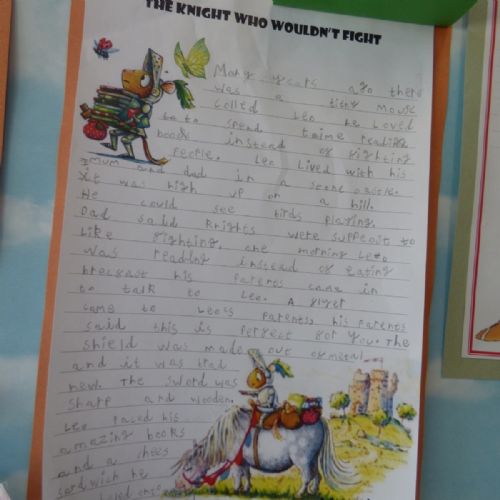 THE KNIGHT WHO WOULDN'T FIGHT
Many years ago there
was a tiny mouse
called Leo he Loved
to to spend time reading
books instead of fighting
People. Leo Lived with his
Mum and dad in a stone castle.
it was high up on a hill.
He could see birds playing.
Dad said knights were
like fighting. one morning Leo
was reading instead of eating
breakfast his parents came in
to talk to Leo. A flyer
came to Leo's parents, his parents
said this is perfect for you. The
shield was made out of metal
and it was
new. The sword was
sharp and wooden.
Leo Paced his
amazing books
and a chees
sandwich he